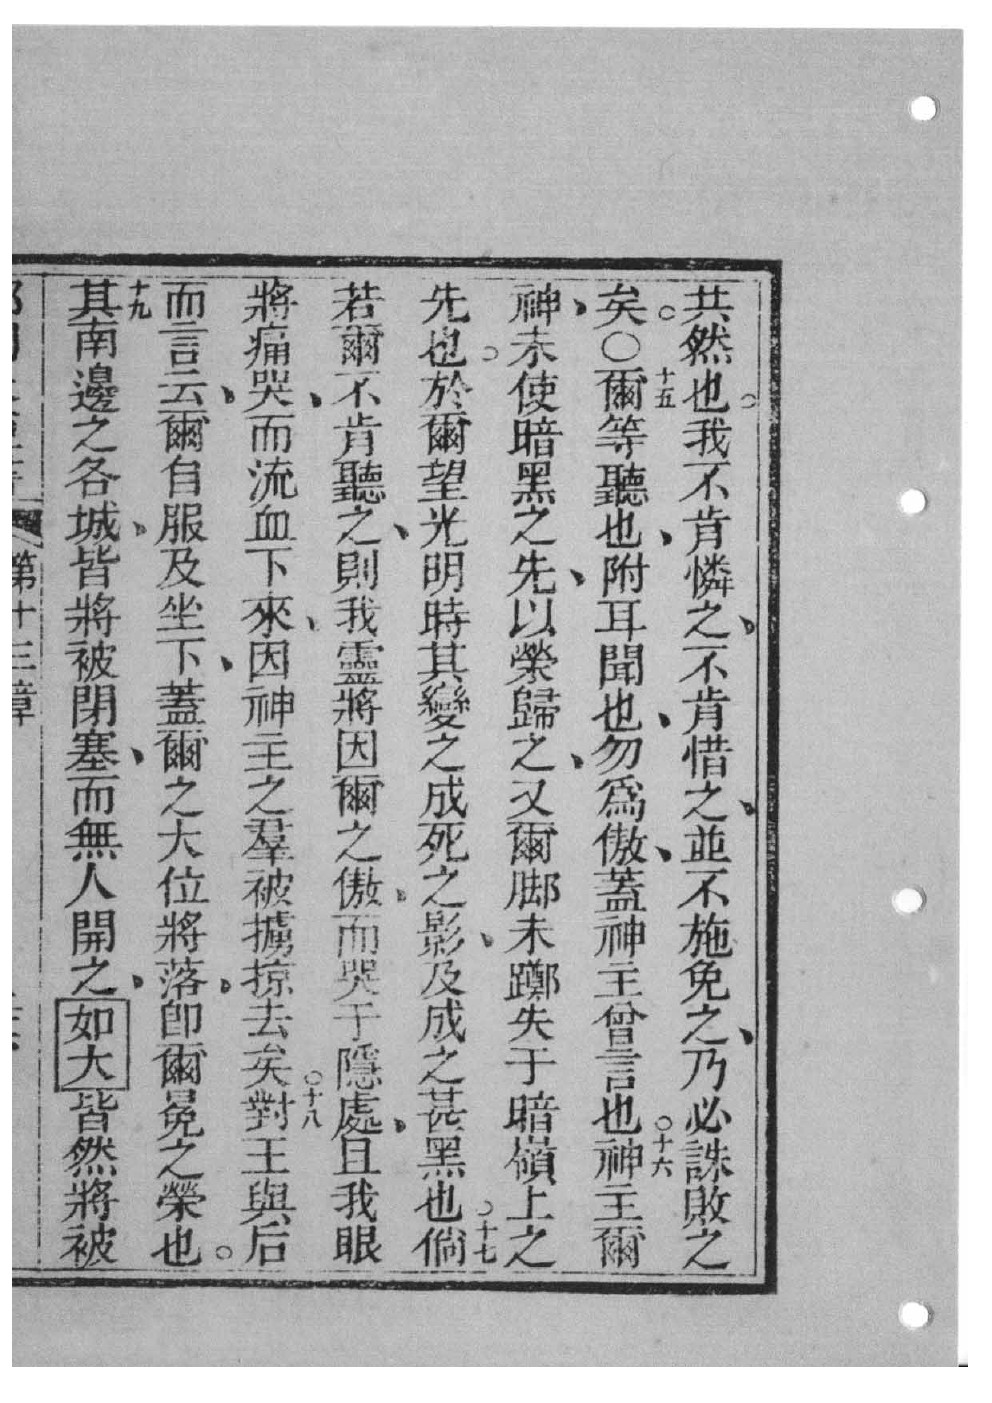 共然也我不肯憐之不肯惜之並不施免之乃必誅敗之
矣○十五爾等聽也附耳聞也勿為傲蓋神主曾言也十六神主爾
神未使暗黑之先以榮歸之又爾脚未躑失于暗嶺上之
先也於爾望光明時其變之成死之影及成之甚黑也十七倘
若爾不肯聽之則我靈將因爾之傲而哭于隱處且我眼
將痛哭而流血下來因神主之羣被擄掠去矣十八對王與后
而言云爾自服及坐下蓋爾之大位將落即爾冕之榮也
十九其南邊之各城皆將被閉塞而無人開之如大皆然將被
第十三章